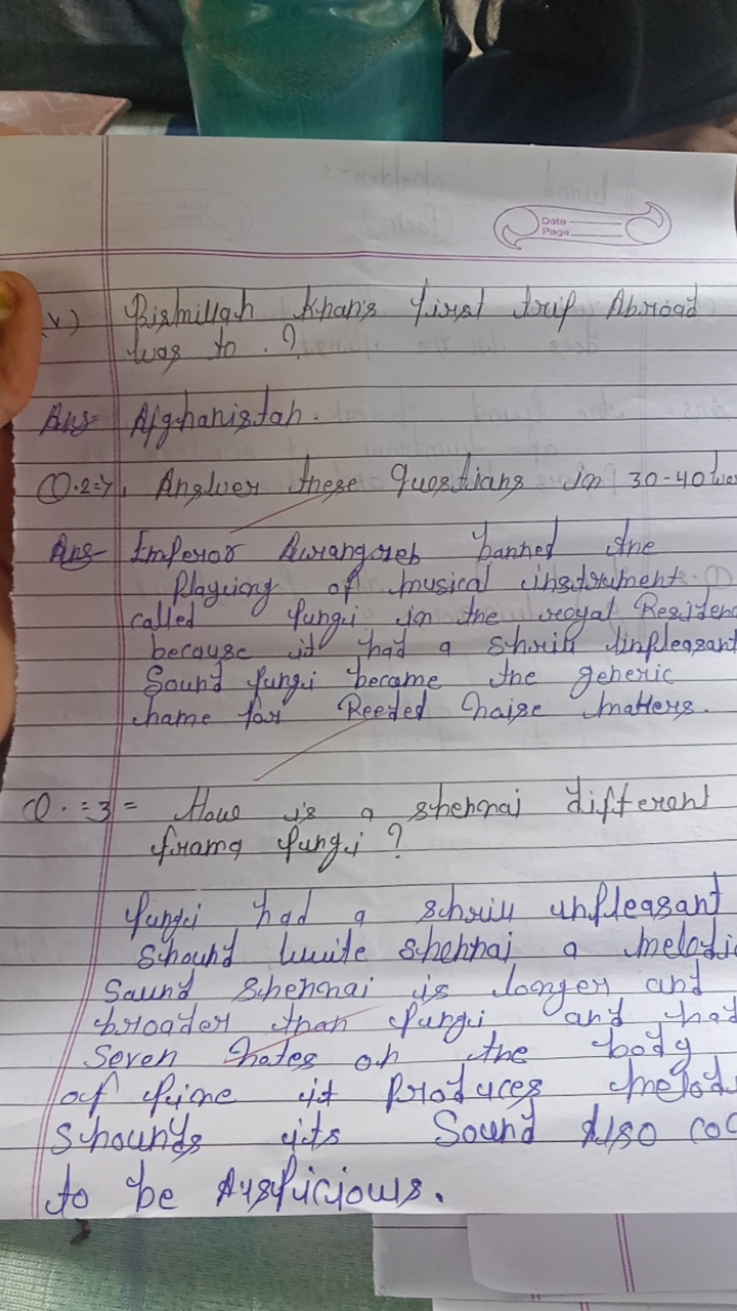 Date
Page
(v) Bismillah Khan's first trip Abroad
was to . ?
Ans- Afghanistan.
Q.2=7. Answer these Questians in 30-40
Ans- Emperor Aurangzeb banned the
Playing of musical instrument
called Pungi in the royal Residen
because it had a Schrill Unpleasant
Sound Pungi became the generic
name for Reeded Naise matters.
Q.=3= How is a shennai different
from a Pungi ?
Pungi had a schrill unpleasant
Schound shennai a melodi
Saund Shennai is longer and
broader than Pungi and had
Seven hotes on the body
of it Produces melod
Schounds its Sound Also co
to be Auspicious.